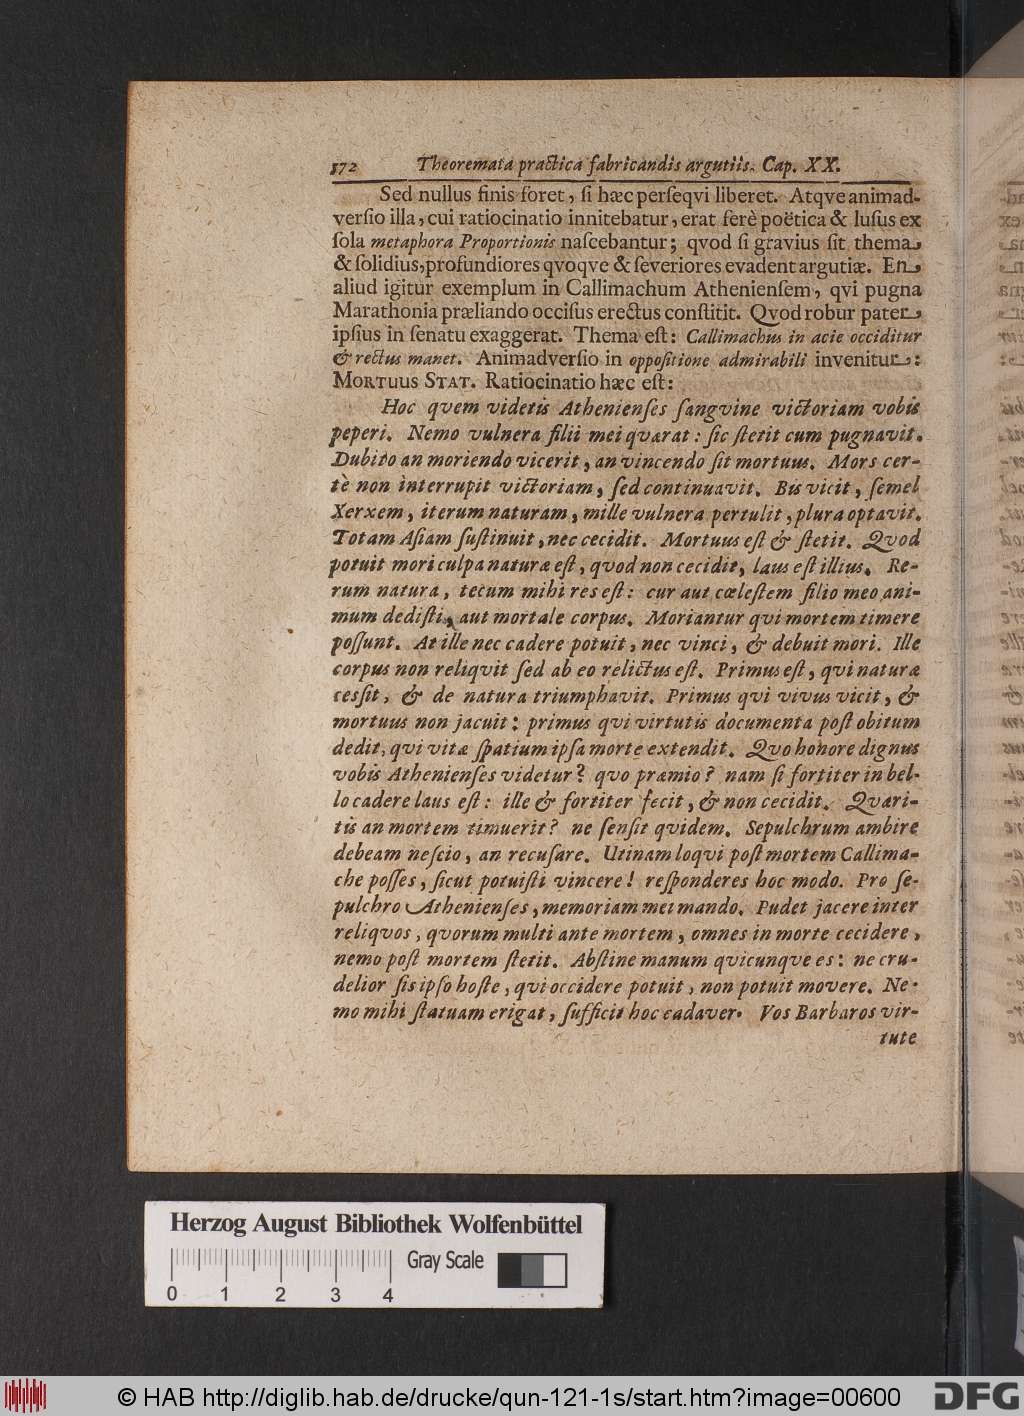 572 Theoremata practica fabricandis argutiis. Cap. XX.
Sed nullus finis foret, ſi hæc perſeqvi liberet. Atqve animad-
verſio illa, cui ratiocinatio innitebatur, erat ferè poëtica & luſus ex
ſola metaphora Proportionis naſcebantur; qvod ſi gravius ſit thema
& ſolidius, profundiores qvoqve & ſeveriores evadent argutiæ. En
aliud igitur exemplum in Callimachum Athenienſem, qvi pugna
Marathonia præliando occiſus erectus conſtitit. Qvod robur pater
ipſius in ſenatu exaggerat. Thema eſt: Callimachus in acie occiditur
& rectus manet. Animadverſio in oppoſitione admirabili invenitur:
MORTUUS STAT. Ratiocinatio hæc eſt:
Hoc qvem videtis Athenienſes ſangvine victoriam vobis
peperi. Nemo vulnera filii mei qværat: ſic ſtetit cum pugnavit.
Dubito an moriendo vicerit, an vincendo ſit mortuus. Mors cer-
tè non interrupit victoriam, ſed continuavit. Bis vicit, ſemel
Xerxem, iterum naturam, mille vulnera pertulit, plura optavit.
Totam Aſiam ſuſtinuit, nec cecidit. Mortuus eſt & ſtetit. Quod
potuit mori culpa naturæ eſt, quod non cecidit, laus eſt illius. Re-
rum natura, tecum mihi res eſt: cur aut cœleſtem filio meo ani-
mum dediſti, aut mortale corpus. Moriantur qvi mortem timere
poſſunt. At ille nec cadere potuit, nec vinci, & debuit mori. Ille
corpus non reliqvit ſed ab eo relictus eſt. Primus eſt, qvi naturæ
ceſſit, & de natura triumphavit. Primus qvi vivus vicit, &
mortuus non jacuit: primus qvi virtutis documenta poſt obitum
dedit, qvi vitæ ſpatium ipſa morte extendit. Qvo honore dignus
vobis Athenienſes videtur? qvo præmio? nam ſi fortiter in bel-
lo cadere laus eſt: ille & fortiter fecit, & non cecidit. Qværi-
tis an mortem timuerit? ne ſenſit qvidem. Sepulchrum ambire
debeam neſcio, an recuſare. Utinam loqvi poſt mortem Callima-
che poſſes, ſicut potuiſti vincere! reſponderes hoc modo. Pro ſe-
pulchro Athenienſes, memoriam mei mando. Pudet jacere inter
reliqvos, qvorum multi ante mortem, omnes in morte cecidere,
nemo poſt mortem ſtetit. Abſtine manum quicunque es: ne cru-
delior ſis ipſo hoſte, qvi occidere potuit, non potuit movere. Ne-
mo mihi ſtatuam erigat, ſufficit hoc cadaver. Vos Barbaros vir-
tute
Herzog August Bibliothek Wolfenbüttel
Gray Scale
0 1 2 3 4
© HAB http://diglib.hab.de/drucke/qun-121-1s/start.htm?image=00600
DFG